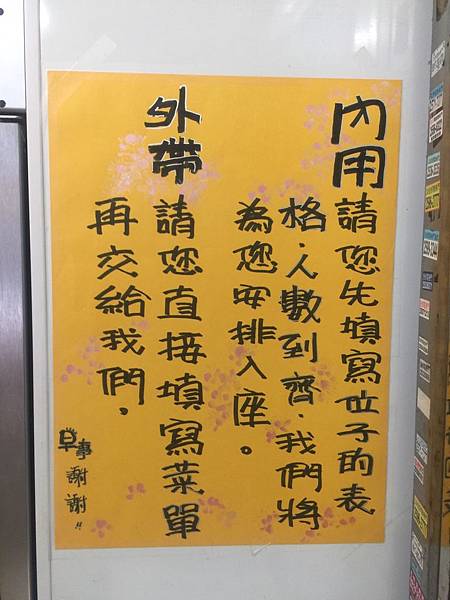 內用請您先填寫位子的表
格.人數到齊.我們將
為您安排入座。
外帶請您直接填寫菜單
再交給我們.
草事
謝謝!!